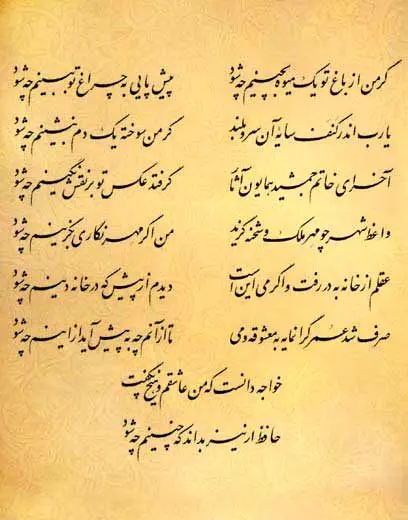 گر من از باغ تو یک میوه بچینم چه شود پیش پایی به چراغ تو ببینم چه شود
یارب اندر کنف سایه آن سرو بلند گر من سوخته یک دم بنشینم چه شود
آخر ای خاتم جمشید همایون آثار گر فتد عکس تو بر نقش نگینم چه شود
واعظ شهر چو مهر ملک و شحنه گزید من اگر مهر نگاری بگزینم چه شود
عقلم از خانه به در رفت و اگر می این است دیدم از پیش که در خانه دینم چه شود
صرف شد عمر گرانمایه به معشوقه و می تا از آنم چه به پیش آید از اینم چه شود
خواجه دانست که من عاشقم و هیچ نگفت
حافظ ار نیز بداند که چنینم چه شود